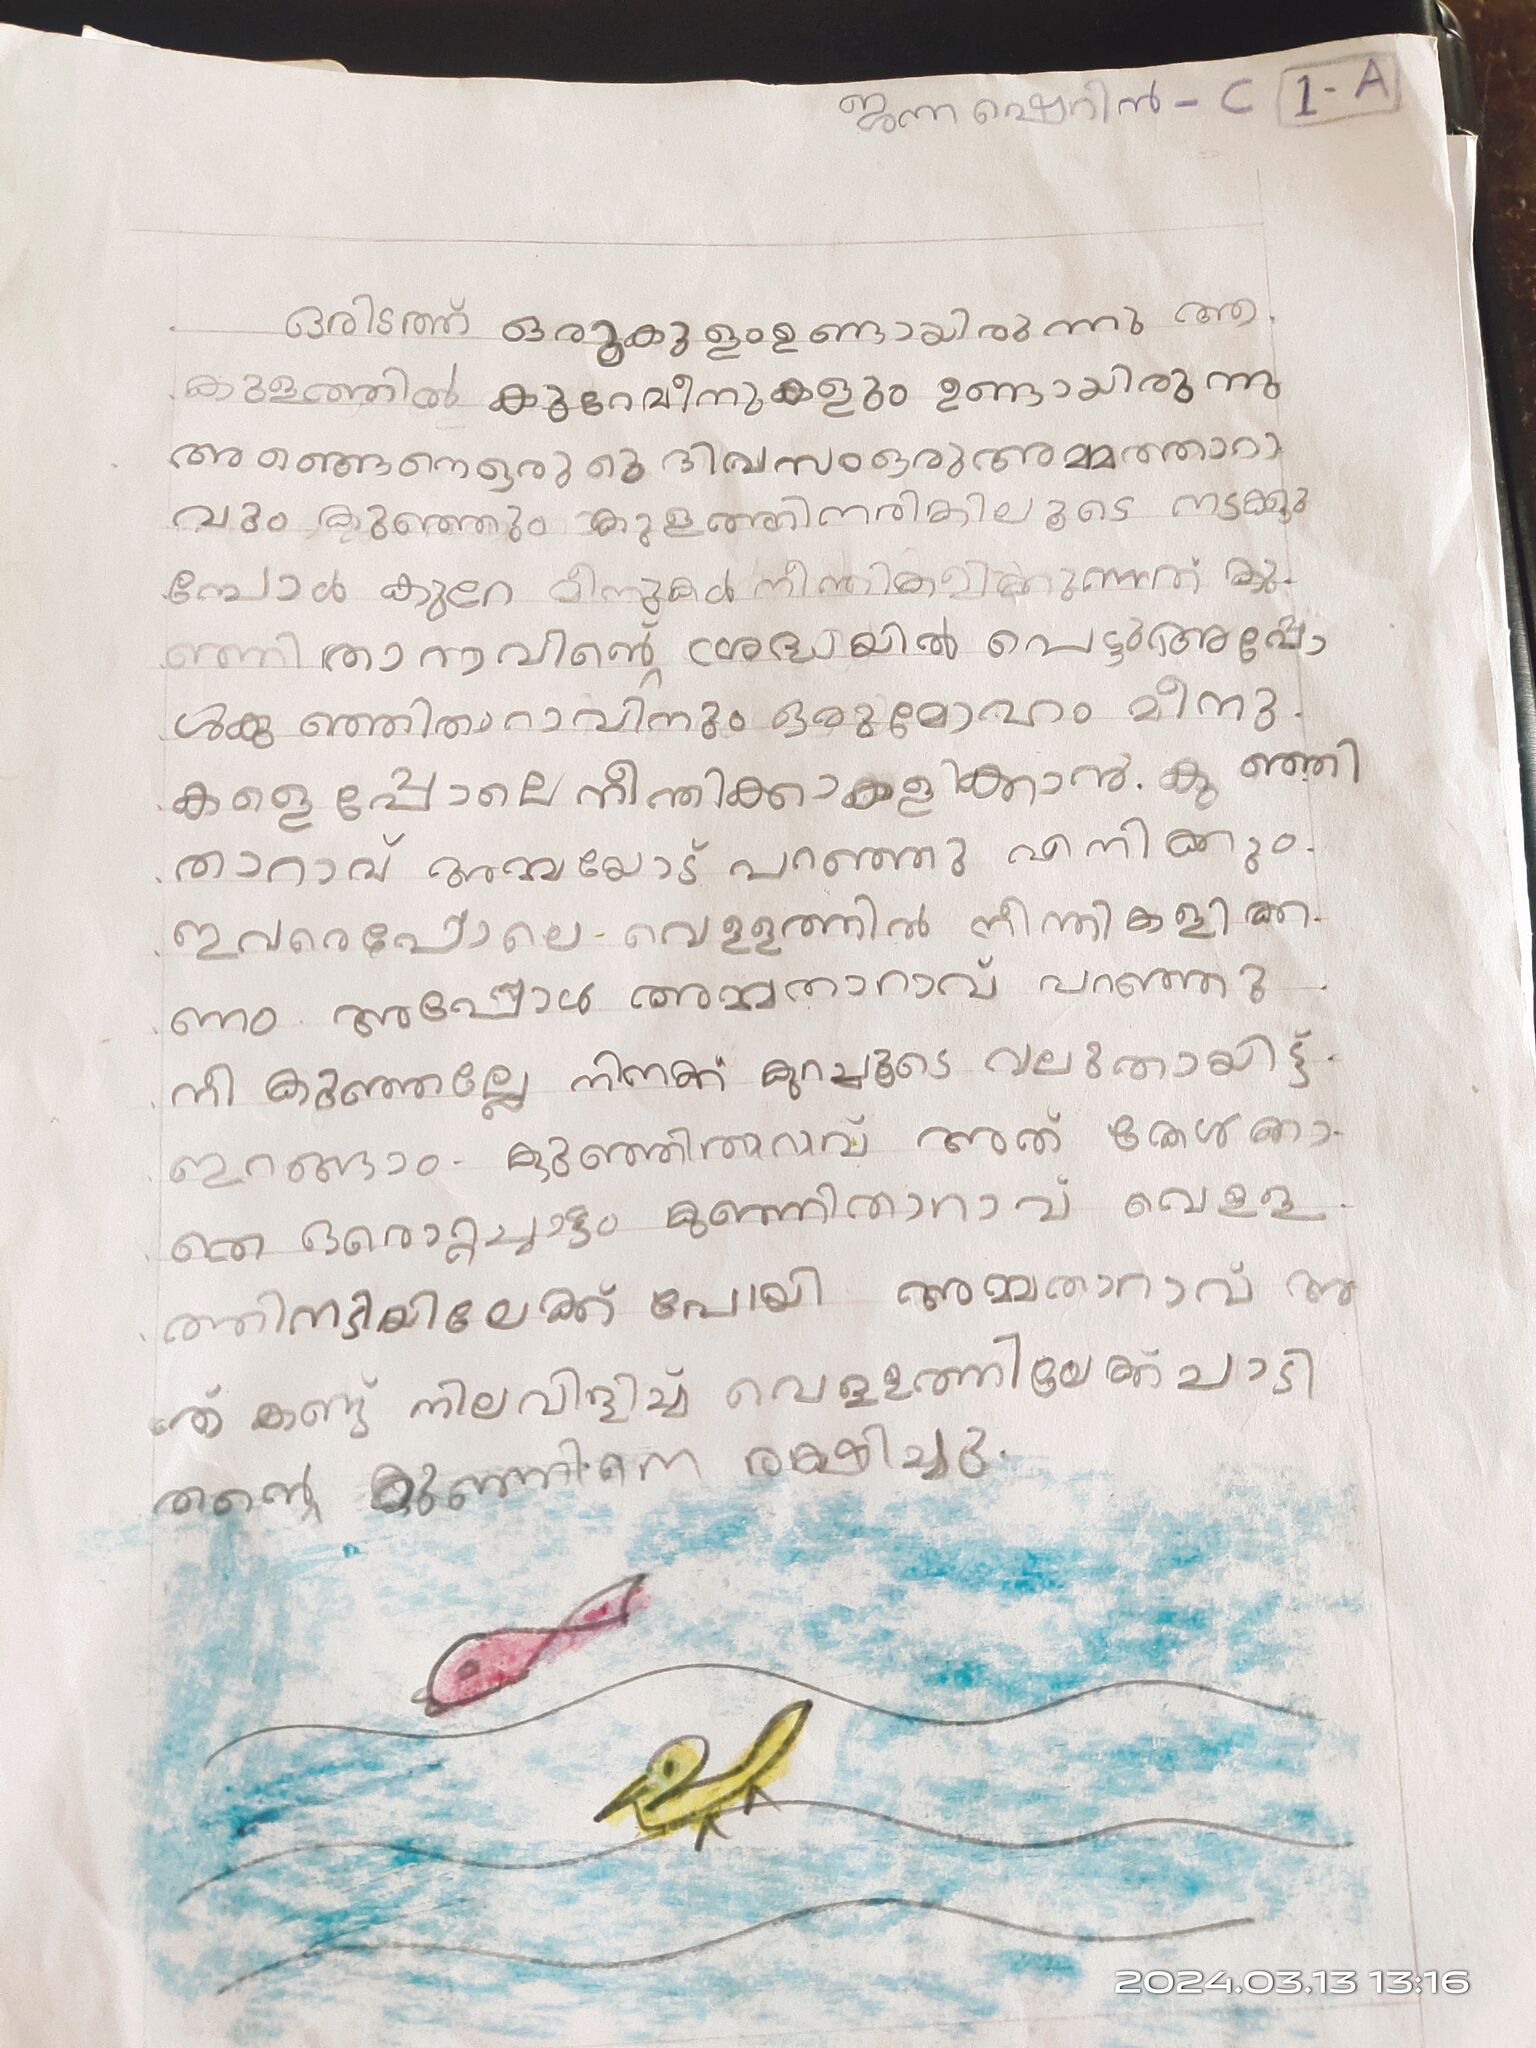 ജന്ന ഷെറിൻ - C 1 - A
ഒരിടത്ത് ഒരു കുളം ഉണ്ടായിരുന്നു ആ
കുളത്തിൽ കുറേ മീനുകളും ഉണ്ടായിരുന്നു
അങ്ങെനെ ഒരു ദിവസം ഒരു അമ്മത്താറാ
വും കുഞ്ഞും കുളത്തിനരികിലൂടെ നടക്കു
മ്പോൾ കുറേ മീനുകൾ നീന്തികളിക്കുന്നത് കു
ഞ്ഞി താറാവിന്റെ ശ്രദ്ധയിൽ പെട്ടു അപ്പോ
ൾ കു ഞ്ഞിതാറാവിനും ഒരു മോഹം മീനു
കളെ പ്പോലെ നീന്തിക്കാകളിക്കാൻ. കു ഞ്ഞി
താറാവ് അമ്മയോട് പറഞ്ഞു എനിക്കും
ഇവരെപ്പോലെ വെള്ളത്തിൽ നീന്തികളിക്ക
ണം അപ്പോൾ അമ്മതാറാവ് പറഞ്ഞു
നീ കുഞ്ഞല്ലേ നിനക്ക് കുറച്ചൂടെ വലുതായിട്ട്
ഇറങ്ങാം. കുഞ്ഞിതാറാവ് അത് കേൾക്കാ
തെ ഒരൊറ്റച്ചാട്ടം കുഞ്ഞിതാറാവ് വെള്ള
ത്തിനടിയിലേക്ക് പോയി അമ്മതാറാവ് അ
ത് കണ്ട് നിലവിളിച്ച് വെള്ളത്തിലേക്ക് ചാടി
തന്റെ കുഞ്ഞിനെ രക്ഷിച്ചു.
2024.03.13 13:16